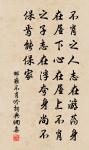 不肖之人志在游荡身
在屋下心在屋上不肖
之子志在侈夸身尚不
保焉能保家
邵雍不肖吟诗典网